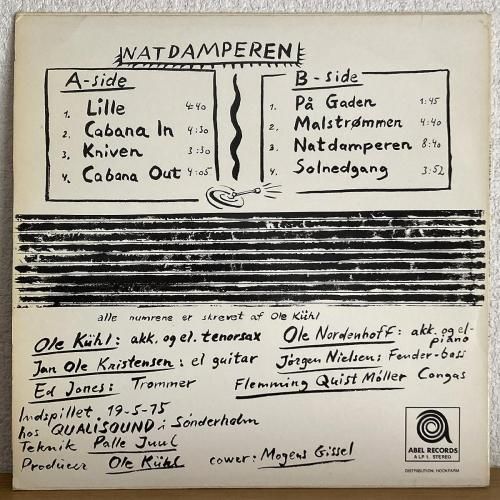 NATDAMPEREN
A-side
1. Lille 4:40
2. Cabana In 4:30
3. Kniven 3:30
4. Cabana Out 4:05
B-side
1. På Gaden 1:45
2. Malstrømmen 4:40
3. Natdamperen 8:40
4. Solnedgang 3:52
alle numrene er skrevet af Ole Kühl
Ole Kühl: akk. og el. tenorsax
Ole Nordenhoff: akk. og el-piano
Jan Ole Kristensen: el guitar
Jörgen Nielsen: Fender-bass
Ed Jones: Trommer
Flemming Quist Møller Congas
Indspillet 19-5-75
hos QUALISOUND i Sönderholm
Teknik Palle Juul
Producer Ole Kühl
cower: Mogens Gissel
ABEL RECORDS
A LP 1. STEREO
DISTRIBUTION: HOOKFARM